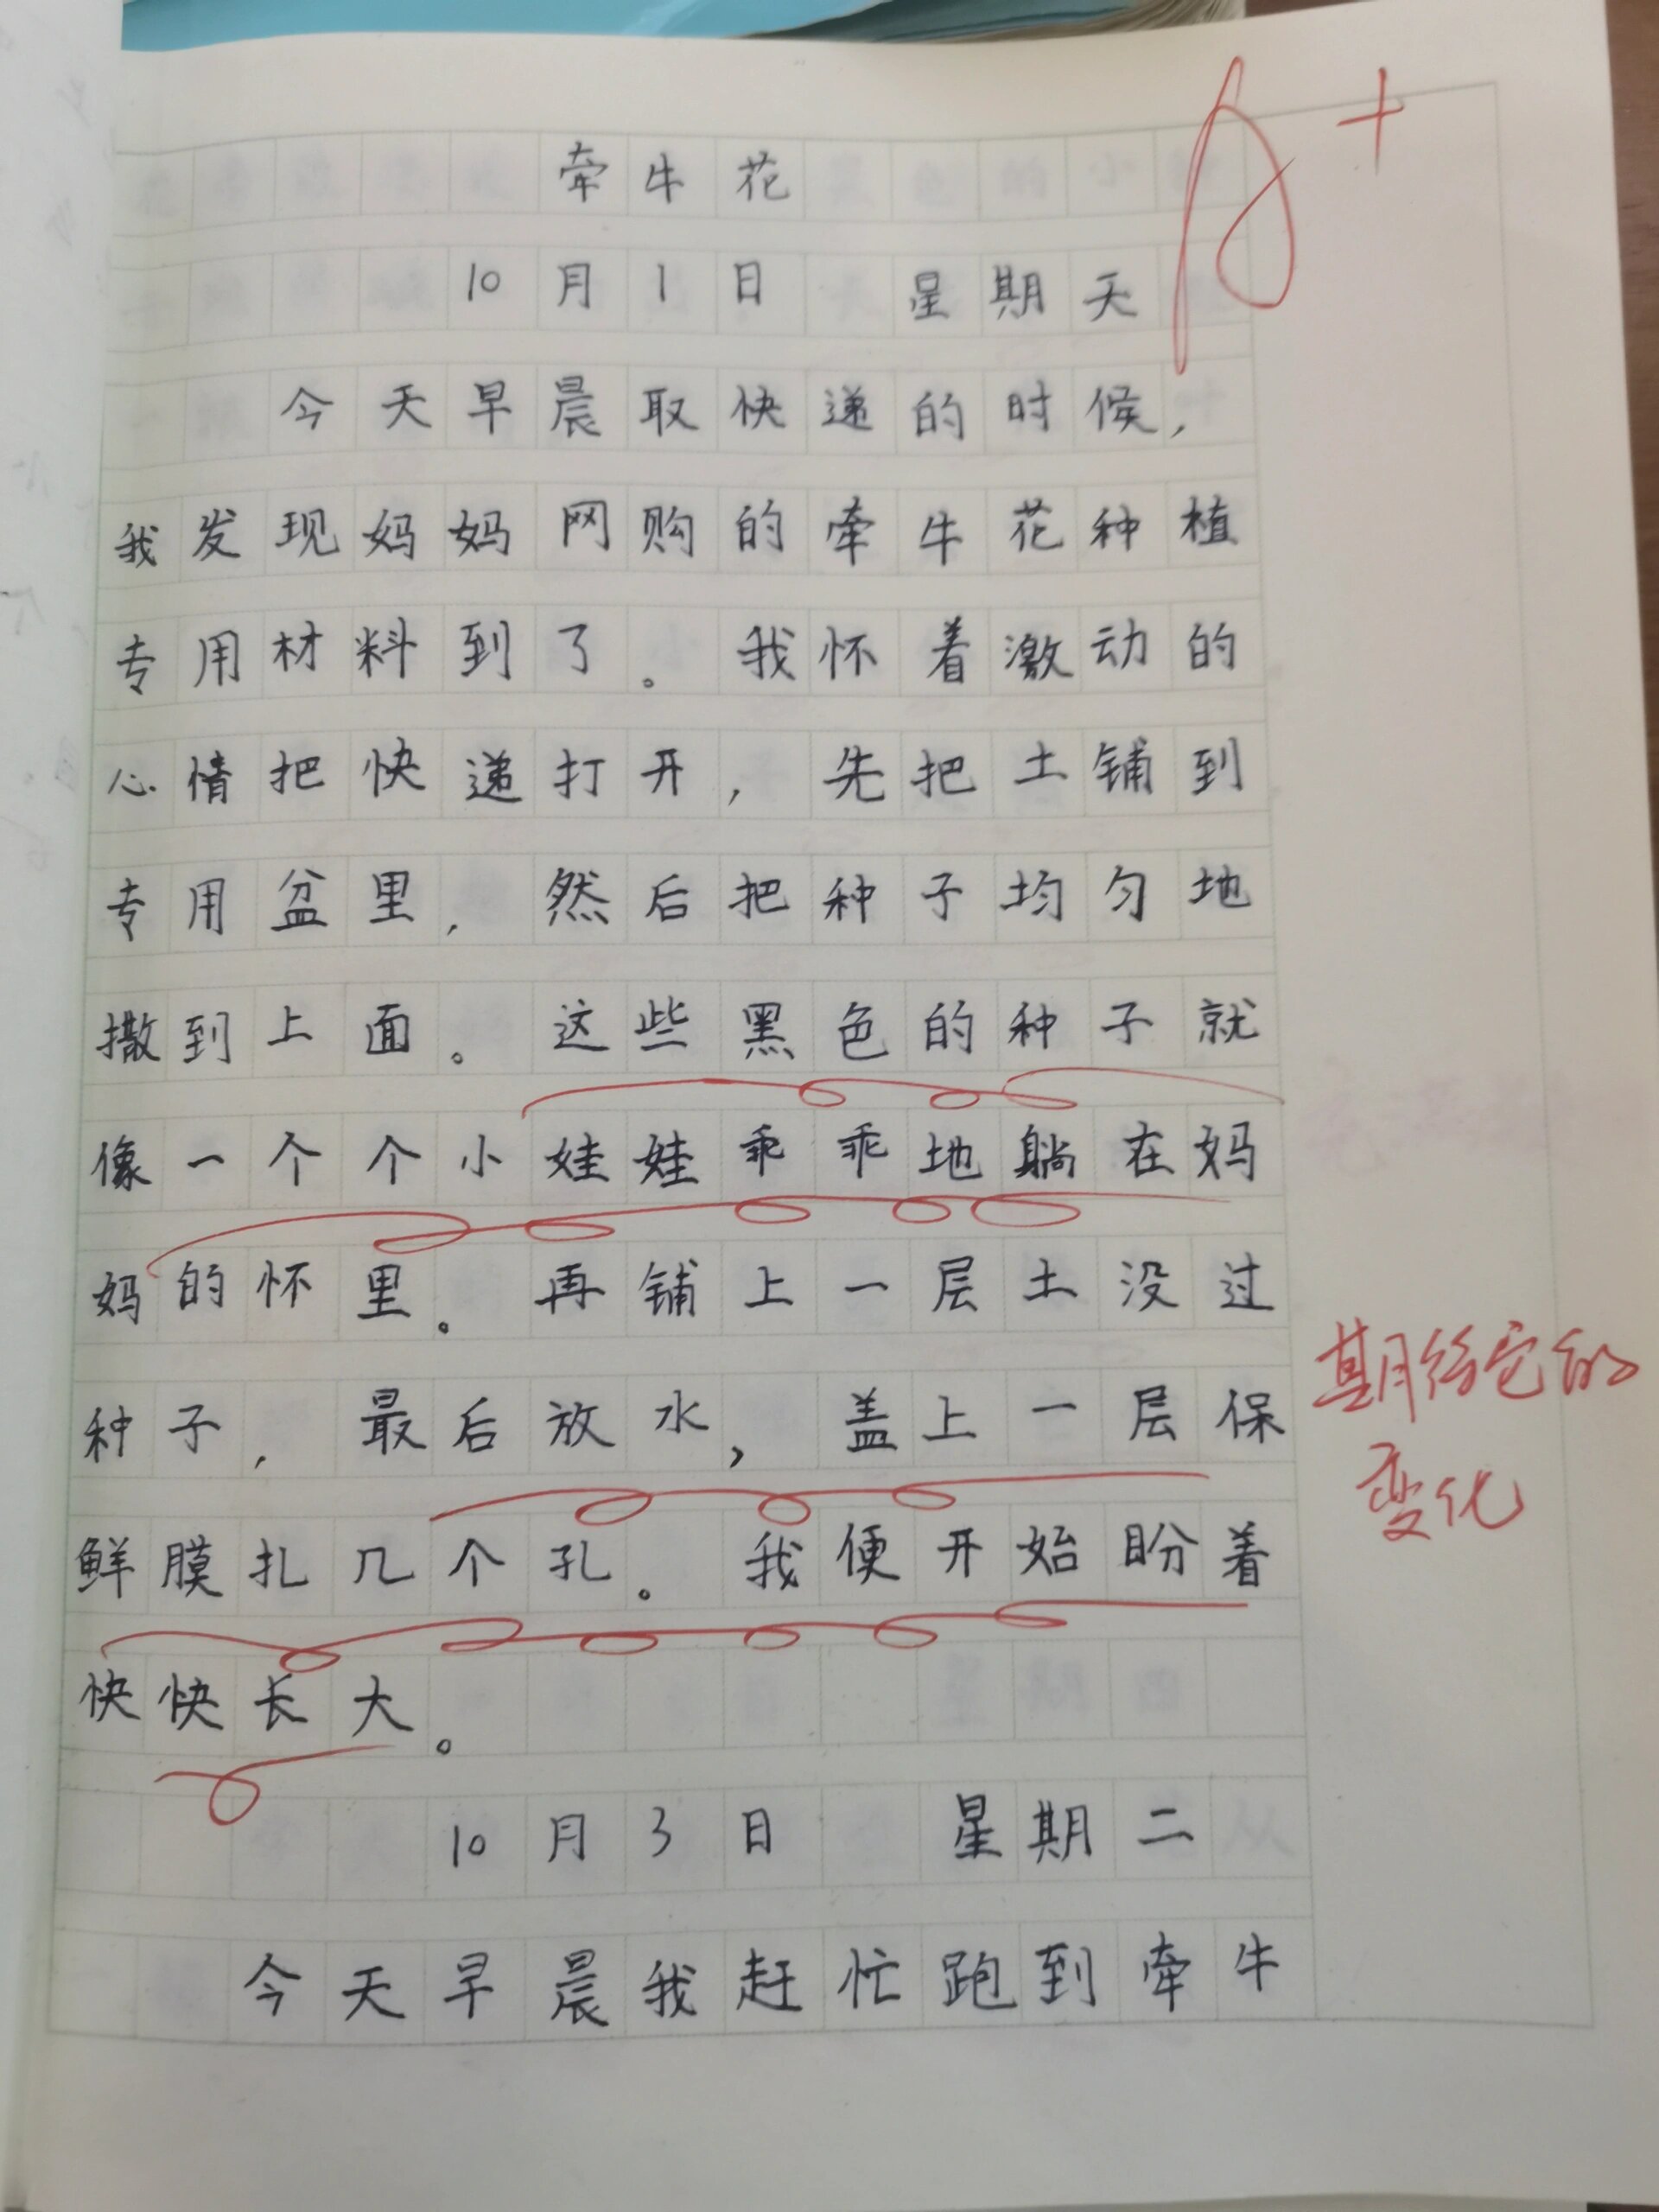 A+
牵牛花
10月1日 星期天
今天早晨取快递的时候,
我发现妈妈网购的牵牛花种植
专用材料到了。我怀着激动的
心情把快递打开,先把土铺到
专用盆里,然后把种子均匀地
撒到上面。这些黑色的种子就
像一个个小娃娃乖乖地躺在妈
妈的怀里。再铺上一层土没过
种子,最后放水,盖上一层保
鲜膜扎几个孔。我便开始盼着
快快长大。
10月3日 星期二
今天早晨我赶忙跑到牵牛
期待它的
变化